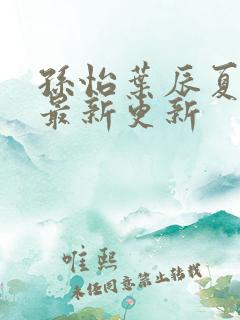 孫怡葉辰夏
最新更新
唯熙
未经同意禁止转载